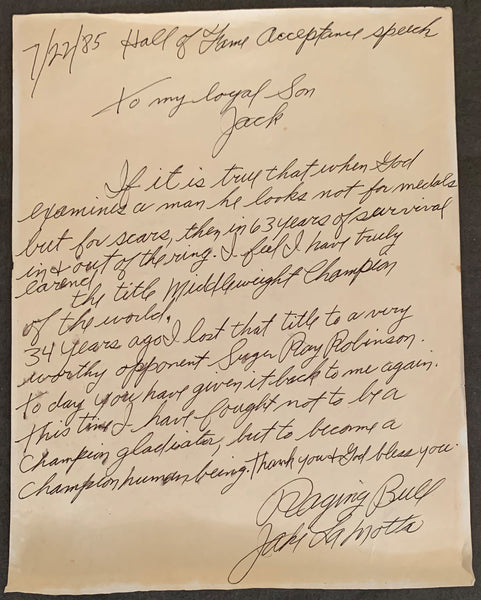 7/22/85 Hall of Fame Acceptance speech
To my loyal Son
Jack
If it is true that when God
examines a man he looks not for medals
but for scars, then in 63 years of survival
in & out of the ring. I feel I have truly
earned
the title Middleweight Champion
of the world.
34 years ago I lost that title to a very
worthy opponent Sugar Ray Robinson.
To day you have given it back to me again.
This time I have fought not to be a
Champion gladiator, but to become a
Champion human being. Thank you & God bless you.
Raging Bull
Jake LaMotta